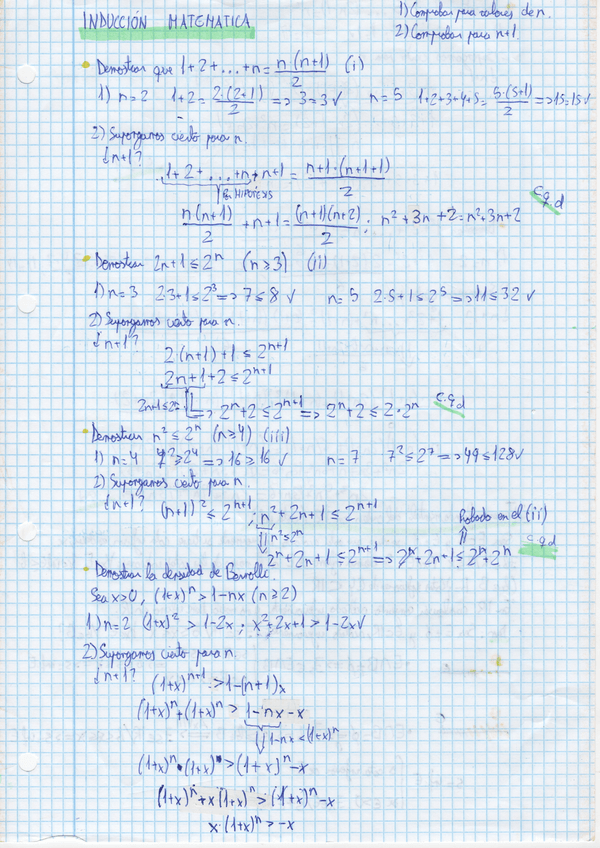 INDUCCIÓN MATEMATICA
1) Comprobar para valores de n.
2) Comprobar para n+1.
• Demostrar que 1+2+...+n = n(n+1)/2 (i)
1) n=2 1+2 = 2·(2+1)/2 => 3=3 √ n=5 1+2+3+4+5 = 5·(5+1)/2 => 15=15 √
2) Supongamos cierto para n.
¿n+1?
1+2+...+n+n+1 = n+1·(n+1+1)/2
Por HIPÓTESIS
n(n+1)/2 + n+1 = (n+1)(n+2)/2 ; n²+3n+2=n²+3n+2
c.q.d
• Demostrar 2n+1 ≤ 2ⁿ (n≥3) (ii)
1) n=3 2·3+1 ≤ 2³ => 7 ≤ 8 √ n=5 2·5+1 ≤ 2⁵ => 11 ≤ 32 √
2) Supongamos cierto para n.
¿n+1?
2·(n+1)+1 ≤ 2ⁿ⁺¹
2n+1+2 ≤ 2ⁿ⁺¹
2n+1≤2ⁿ => 2ⁿ+2 ≤ 2ⁿ⁺¹ => 2ⁿ+2 ≤ 2·2ⁿ c.q.d
• Demostrar n² ≤ 2ⁿ (n≥4) (iii)
1) n=4 4² ≥ 2⁴ => 16 ≥ 16 √ n=7 7² ≤ 2⁷ => 49 ≤ 128 √
2) Supongamos cierto para n.
¿n+1? (n+1)² ≤ 2ⁿ⁺¹ ; n²+2n+1 ≤ 2ⁿ⁺¹
Probado en el (ii)
n²≤2ⁿ
2ⁿ+2n+1 ≤ 2ⁿ⁺¹ => 2ⁿ+2n+1 ≤ 2ⁿ+2ⁿ c.q.d
• Demostrar la densidad de Bernolli.
Sea x>0, (1+x)ⁿ > 1-nx (n≥2)
1) n=2 (1+x)² > 1-2x ; x²+2x+1 > 1-2x √
2) Supongamos cierto para n.
¿n+1?
(1+x)ⁿ⁺¹ > 1-(n+1)x
(1+x)ⁿ+(1+x)ⁿ > 1-nx-x
1-nx < (1+x)ⁿ
(1+x)ⁿ·(1+x) > (1+x)ⁿ-x
(1+x)ⁿ+x·(1+x)ⁿ > (1+x)ⁿ-x
x·(1+x)ⁿ > -x